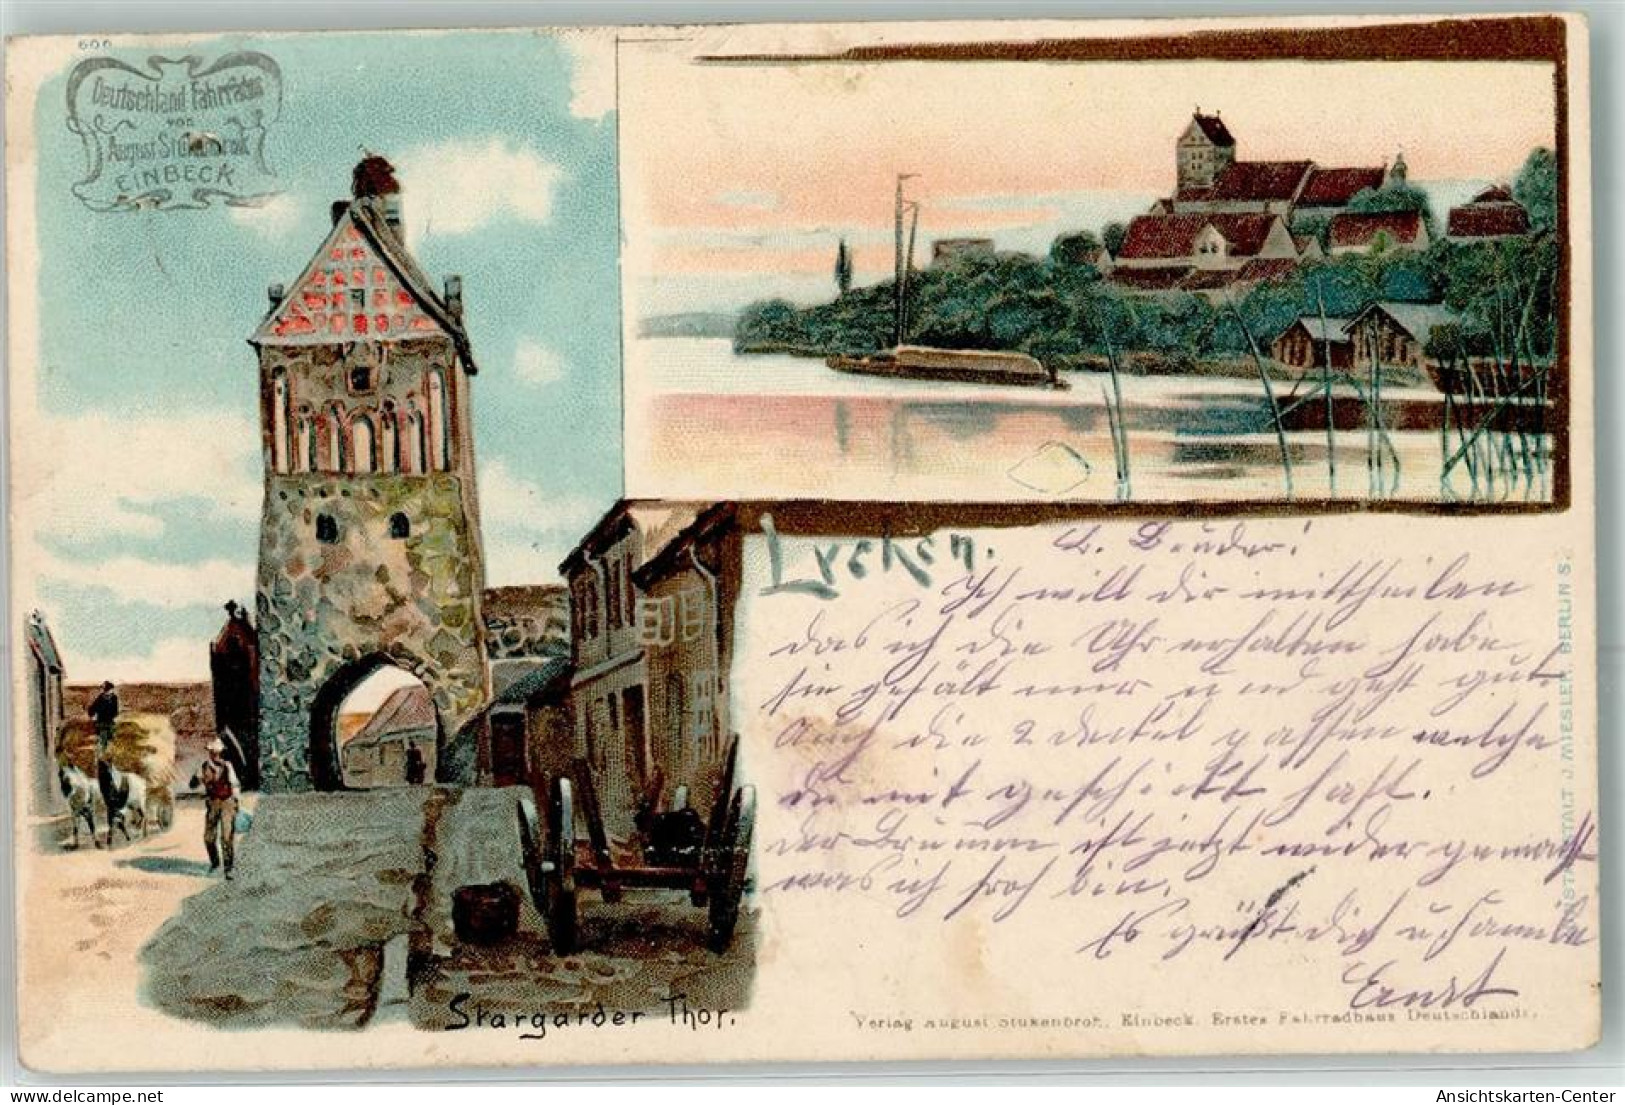 606
Deutschland-Fahrräder
von
August Stukenbrok
EINBECK
Lychen.
L. Bruder!
Ich will dir mittheilen
das ich die Uhr erhalten habe
sie gefält mir und geht gut.
Auch die 2 deckel passen welche
du mit geschickt hast.
der Brunnen ist jetzt wider gemacht
was ich froh bin.
Es grüßt dich u. Familie
Ernst
Stargarder Thor.
Verlag August Stukenbrok, Einbeck. Erstes Fahrradhaus Deutschlands.
KUNSTANSTALT J. MIESLER, BERLIN S.
Ansichtskarten-Center